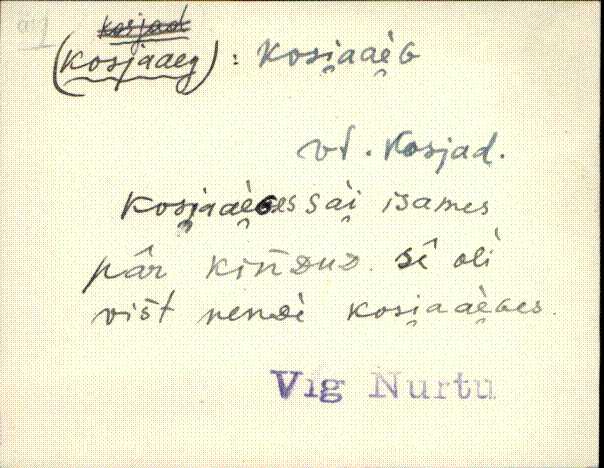 kosjad
(kosjaaeg) : kosi̯aae̯G
vt. kosjad.
kosi̯aae̯Ges sai̯ isames
pâr kińDuD. sê oĺi
višt nenDè kosi̯aae̯Ges.
Vig Nurtu